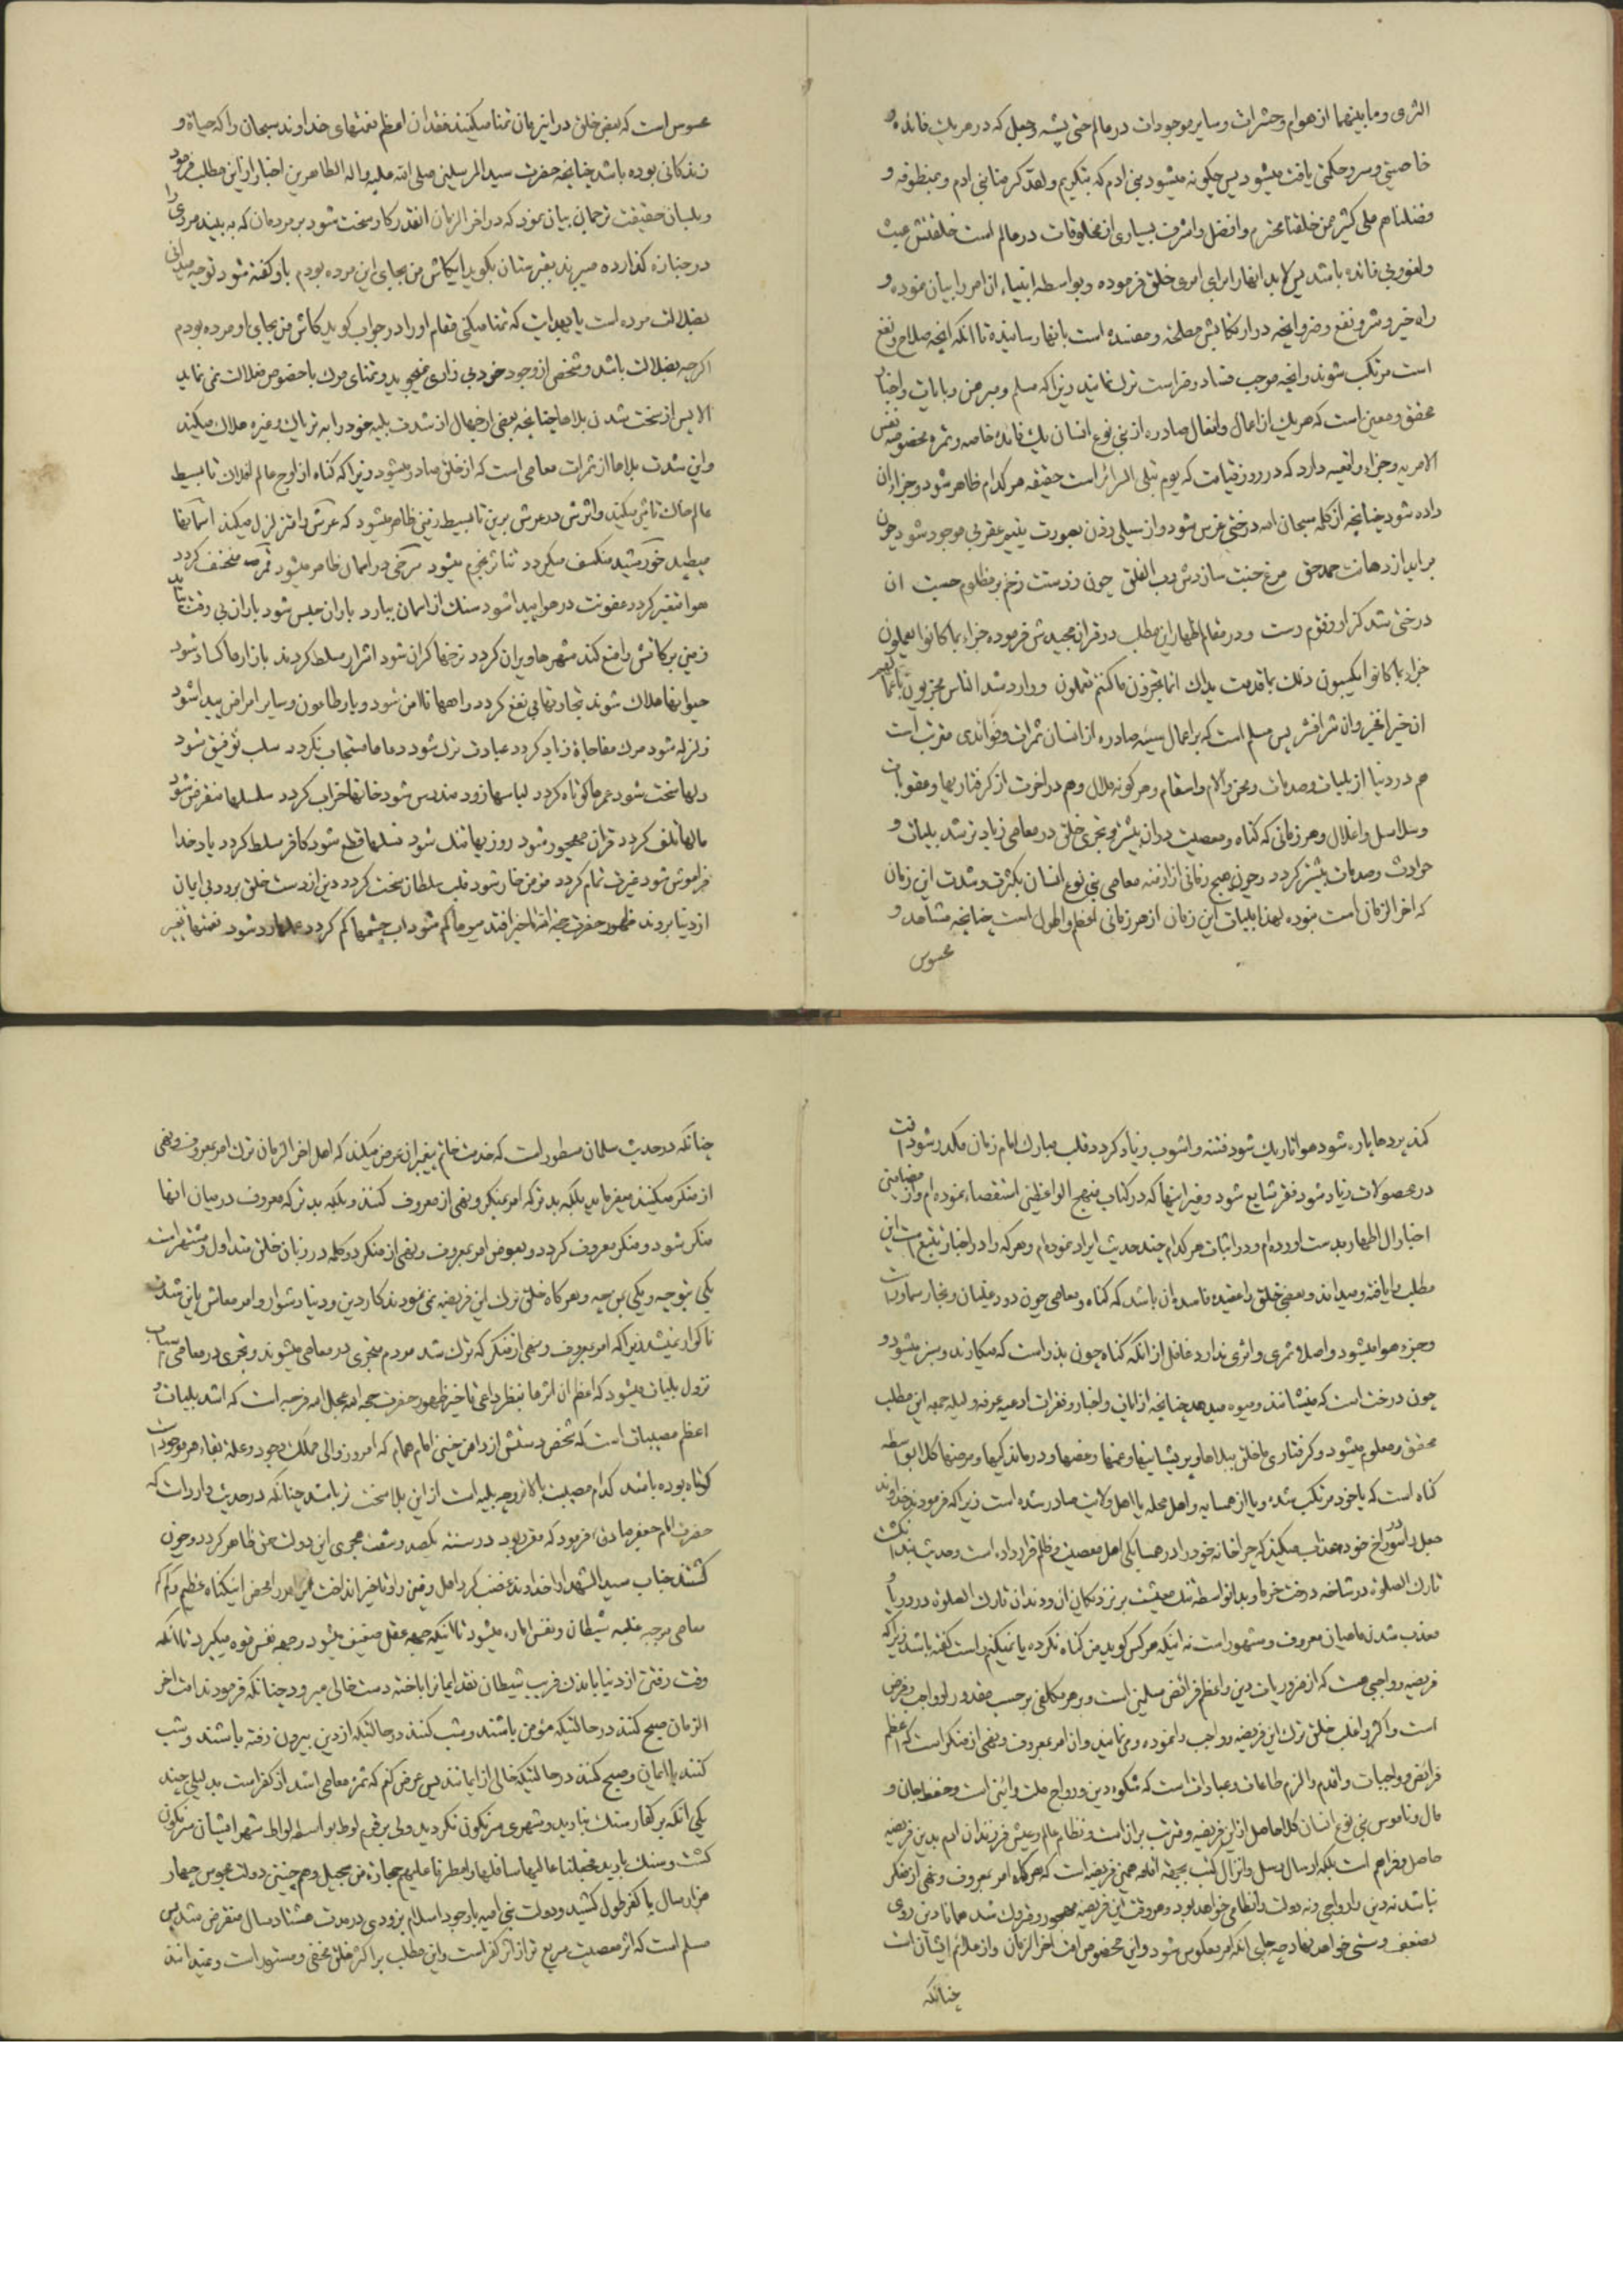 الثری وما بینهما از هوام وحشرات وسایر موجودات در عالم حتی پشه وجعل که در هر یک فائده و
خاصیتی وسر وحکمتی یافت میشود پس چکونه میشود بنی ادم که بتکریم ولقد کرمنا بنی ادم وبمنطوقه و
فضلناهم علی کثیر ممن خلقنا محترم وافضل واشرف بسیاری از مخلوقات در عالم است خلقتش عبث
ولغو وبی فائده باشد پس لابد انها را برای امری خلق فرموده وبواسطه انبیاء ان امر را بیان نموده و
راه خیر وشر ونفع وضر وانچه در ارتکابش مصلحة ومفسدة است بانها رسانیده تا انکه انچه صلاح ونفع
است مرتکب شوند وانچه موجب فساد وضر است ترک نمایند زیرا که مسلم ومبرهن وبایات واخبار
محقق ومعین است که هر یک از اعمال وافعال صادره از بنی نوع انسان یک فائده خاصه وثمره مخصوصه نفس
الامریه وجزاء واقعیه دارد که در روز قیامت که یوم تبلی السرائر است حقیقه هر کدام ظاهر شود وجزاء ان
داده شود چنانچه از کلمه سبحان الله درختی غرس شود واز سیلی زدن بصورت یتیم عقربی موجود شود چون
بر اید از دهانت حمد حق مرغ جنت سازدش رب الفلق چون ز دستت زخم بر مظلوم رست ان
درختی شد کز او زقوم رست ودر مقام اظهار این مطلب در قران مجیدش فرموده جزاء بما کانوا یعملون
جزاء بما کانوا یکسبون ذلک بما قدمت یداک انما تجزون ما کنتم تعملون ووارد شد الناس مجزیون باعمالهم
ان خیرا فخیر وان شرا فشر پس مسلم است که بر اعمال سیئه صادره از انسان ثمرات وفوائدی مترتب است
هم در دنیا از بلیات وصدمات ومحن والام واسقام وهر کونه ملال وهم در اخرت از کرفتاریها وعقوبات
وسلاسل واغلال وهر زمانی که کناه ومعصیت در ان بیشتر وتجری خلق در معاصی زیادتر شد بلیات و
حوادث وصدمات بیشتر کردد وچون هیچ زمانی از ازمنه معاصی بنی نوع انسان بکثرت وشدت این زمان
که اخر الزمان است نبوده لهذا بلیات این زمان از هر زمانی اعظم واطول است چنانچه مشاهد و
محسوس
محسوس است که بعض خلق در این زمان تمنا میکنند فقدان اعظم نعمتهای خداوند سبحان را که حیاة و
زندکانی بوده باشد چنانچه حضرت سید المرسلین صلی الله علیه واله الطاهرین اخبار از این مطلب فرمود
وبلسان حقیقت ترجمان بیان نمود که در اخر الزمان انقدر کار سخت شود بر مردمان که به بیند مرده را
در جنازه کذارده میبرند بقبرستان بکوید ایکاش من بجای این مرده بودم باو کفته شود توجه میدانی
بضلالت مرده است یا بهدایت که تمنا میکنی مقام او را در جواب کوید کاش من بجای او مرده بودم
اکرچه بضلالت باشد وشخص از وجود خود بی زاری نمیجوید وتمنای مرک با خصوص ضلالت نمی نماید
الا پس از سخت شدن بلاها چنانچه بعضی از جهال از شدت بلیه خود را به تریاک وغیره هلاک میکنند
واین شدت بلاها از ثمرات معاصی است که از خلق صادر میشود زیرا که کناه از اوج عالم افلاک تا بسیط
عالم خاک تاثیر میکند واثرش در عرش برین تا بسیط زمین ظاهر میشود که عرش را متزلزل میکند اسمانها
میطپد خورشید منکسف میکردد تناثر نجوم میشود سرخی در اسمان ظاهر میشود قمر منخسف کردد
هوا متغیر کردد عفونت در هوا پیدا شود سنک از اسمان ببارد باران حبس شود باران بی وقت بیاید
زمین برکاتش را منع کند شهرها ویران کردد نرخها کران شود اشرار مسلط کردند بازارها کساد شود
حیوانها هلاک شوند تجارتها بی نفع کردد راهها ناامن شود وبا وطاعون وسایر امراض پیدا شود
زلزله شود مرک مفاجاة زیاد کردد عبادت ترک شود دعاها مستجاب نکردد سلب توفیق شود
دلها سخت شود عمرها کوتاه کردد لباسها زود مندرس شود خانها خراب کردد سلسلها منقرض شود
مالها تلف کردد قران مهجور شود روزیها تنک شود نسلها قطع شود کافر مسلط کردد یاد خدا
فراموش شود غیرت تمام کردد مؤمن خار شود قلب سلطان سخت کردد دین از دست خلق برود بی ایمان
از دنیا بروند ظهور حضرت حجة الله تاخیر افتد میوها کم شود اب چشمها کم کردد عملها رد شود نعمتها تغییر
کند پردها پاره شود هوا تاریک شود فتنه واشوب زیاد کردد قلب مبارک امام زمان مکدر شود افت
در محصولات زیاد شود فقر شایع شود وغیر اینها که در کتاب منهج الواعظین استقصاء نموده ام واز مضامین
اخبار ال اطهار بدست اورده ام ودر اثبات هر کدام چند حدیث ایراد نموده ام وهر که را در اخبار تتبع است این
مطلب را یافته ومیداند وبعضی خلق را عقیده فاسده ان باشد که کناه ومعاصی چون دود غلیان وبخار سماور است
وجزء هوا میشود واصلا ثمری واثری ندارد غافل از انکه کناه چون بذر است که میکارند وسبز میشود و
چون درخت است که مینشانند ومیوه میدهد چنانچه از ایات واخبار وفقرات ادعیه عرفه ولیله جمعه این مطلب
محقق ومعلوم میشود وکرفتاری ما خلق ببلاها وپریشانیها وغمها وغصها ودرماندکیها ومرضها کلا بواسطه
کناه است که یا خود مرتکب شده ویا از همسایه واهل محله یا اهل ولایت صادر شده است زیرا که فرمودند خداوند
جعل را در سوراخ خود معذب میکند که چرا خانه خود را در همسایکی اهل معصیت وظلم قرار داده است وحدیث
تارک الصلوة در شاخه درخت خرما وبدانواسطه تنک معیشت بر نزدیکان ان ودندان تارک الصلوة در دریا و
معذب شدن ماهیان معروف ومشهور است نه اینکه هر کس کوید من کناه نکرده یا نمیکنم راست کفته باشد زیرا که
فریضه وواجبی هست که از ضروریات دین واعظم فرائض مسلمین است وبر هر مکلفی بر حسب مقدور او واجب وفرض
است واکثر واغلب خلق ترک این فریضه وواجب را نموده ومی نمایند وان امر بمعروف ونهی از منکر است که اعظم
فرائض وواجبات واقدم والزم طاعات وعبادات است که شکوه دین ورواج ملت وائین است وحفظ جان و
مال وناموس بنی نوع انسان کلا حاصل از این فریضه ومترتب بر ان است ونظام عالم وعیش فرزندان ادم بدین فریضه
حاصل وفراهم است بلکه ارسال رسل وانزال کتب بجهة اقامه همین فریضه است که هر کاه امر بمعروف ونهی از منکر
نباشد نه دین را رواجی ونه دولت را نظامی خواهد بود وهر وقت این فریضه مهجور ومتروک شد همانا دین روی
بضعف وسستی خواهد نهاد چه جای انکه امر معکوس شود واین مخصوص اخر الزمان واز علائم ایشان است
چنانکه
چنانکه در حدیث سلمان مسطور است که خدمت خاتم پیغمبران عرض میکند که اهل اخر الزمان ترک امر بمعروف ونهی
از منکر میکنند میفرماید بلکه بدتر که امر بمنکر ونهی از معروف کنند وبلکه بدتر که معروف در میان انها
منکر شود ومنکر معروف کردد وبعوض امر بمعروف ونهی از منکر دو کلمه در زبان خلق متداول ومشتهر است
یکی بتوچه ویکی بمن چه وهر کاه خلق ترک این فریضه نمی نمودند کار دین ودنیا دشوار وامر معاش باین شدت
ناکوار نمیشد زیرا که امر بمعروف ونهی از منکر که ترک شد مردم متجری در معاصی میشوند وتجری در معاصی اسباب
نزول بلیات میشود که اعظم ان اثرها بنظر داعی تاخیر ظهور حضرت حجة الله عجل الله فرجه است که اشد بلیات و
اعظم مصیبات است که شخص دستش از دامن چنین امام همام که امروز والی ملک وجود وعلة بقاء هر موجود است
کوتاه بوده باشد کدام مصیبت بالاتر وچه بلیه است از این بلا سخت تر باشد چنانکه در حدیث وارد است که
حضرت امام جعفر صادق فرمود که مقرر بود در سنه یکصد وشصت هجری این دولت حق ظاهر کردد وچون
کشتند جناب سید الشهداء را خداوند غضب کرد بر اهل زمین واو تاخیر انداخت کناه عظیم وکم کم
معاصی موجب غلبه شیطان ونفس اماره میشود تا اینکه جنبه عقل ضعیف میشود وجنبه نفس قوه میکیرد تا انکه
وقت رفتن از دنیا باندک فریب شیطان نقد ایمانرا باخته دست خالی میرود چنانکه فرمودند امت اخر
الزمان صبح کنند در حالتیکه مؤمن باشند وشب کنند در حالتیکه از دین بیرون رفته باشند وشب
کنند با ایمان وصبح کنند در حالتیکه خالی از ایمانند پس عرض کنم که ثمره معاصی اشد از کفر است بدلیلی چند
یکی انکه بر کفار سنک نبارید وشهری سرنکون نکردید ولی بر قوم لوط بواسطه لواط شهر ایشان سرنکون
کشت وسنک بارید فجعلنا عالیها سافلها وامطرنا علیهم حجارة من سجیل وهم چنین دولت مجوس چهار
هزار سال با کفر طول کشید ودولت بنی امیه با وجود اسلام بزودی در مدت هشتاد سال منقرض شد پس
مسلم است که اثر معصیت سریع تر از اثر کفر است واین مطلب بر اکثر خلق مخفی ومستور است ونمیدانند